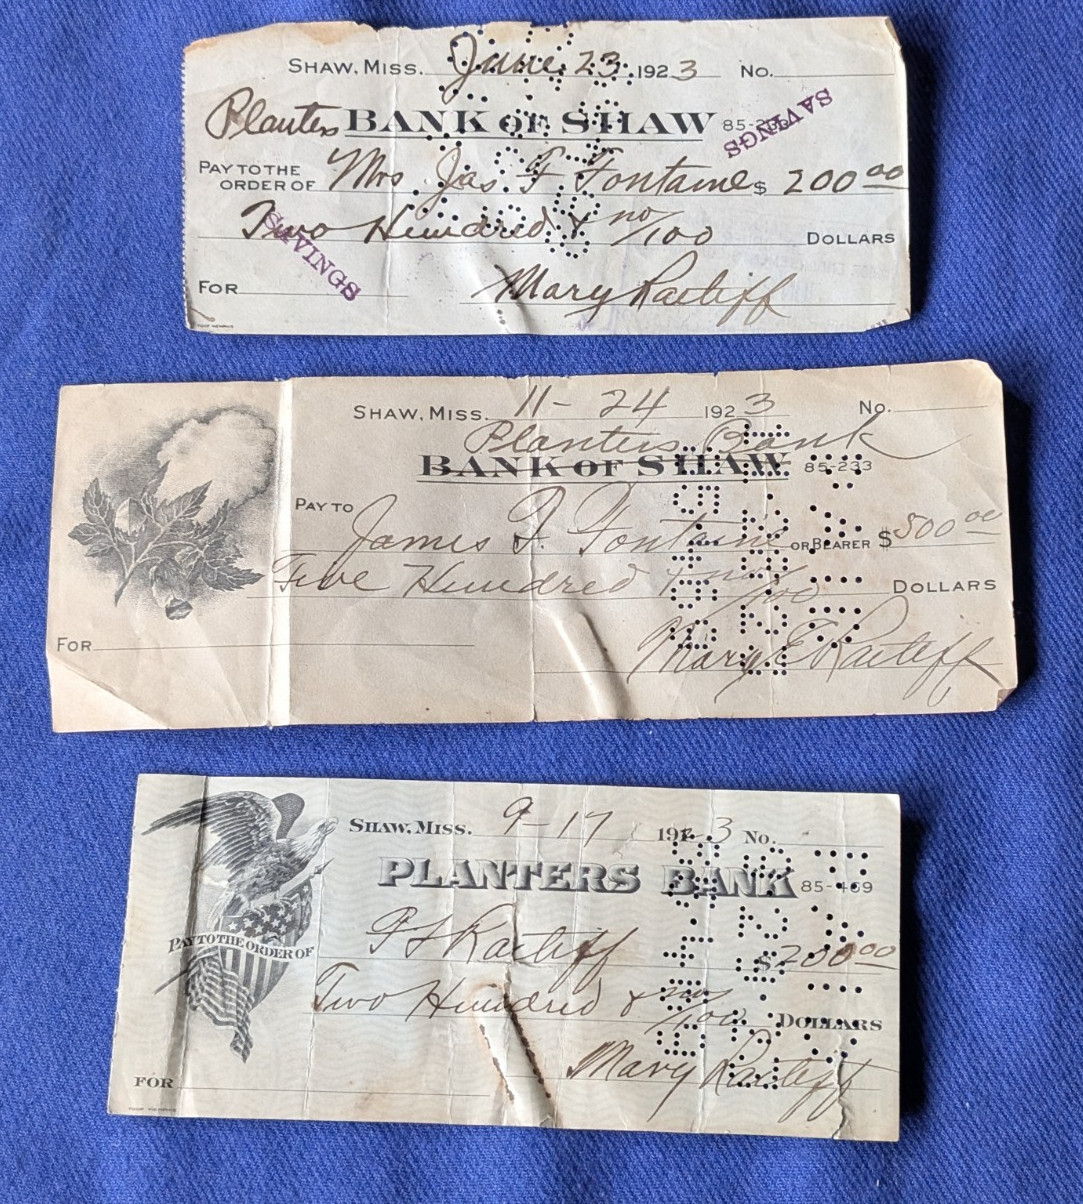 SHAW, MISS. June 23 1923 No.
Planters BANK OF SHAW 85-233
SAVINGS
PAY TO THE ORDER OF Mrs Jas. F Fontaine $ 200 00
Two Hundred & no/100 DOLLARS
SAVINGS
FOR Mary Ratliff
SHAW, MISS. 11-24 1923 No.
Planters Bank
BANK OF SHAW 85-233
PAY TO James F. Fontaine OR BEARER $500 00
Five Hundred & no/100 DOLLARS
Mary E Ratliff
FOR
SHAW, MISS. 9-17 191 3 No.
PLANTERS BANK 85-469
PAY TO THE ORDER OF
Ratliff $200 00
Two Hundred & no/100 DOLLARS
Mary Ratliff
FOR